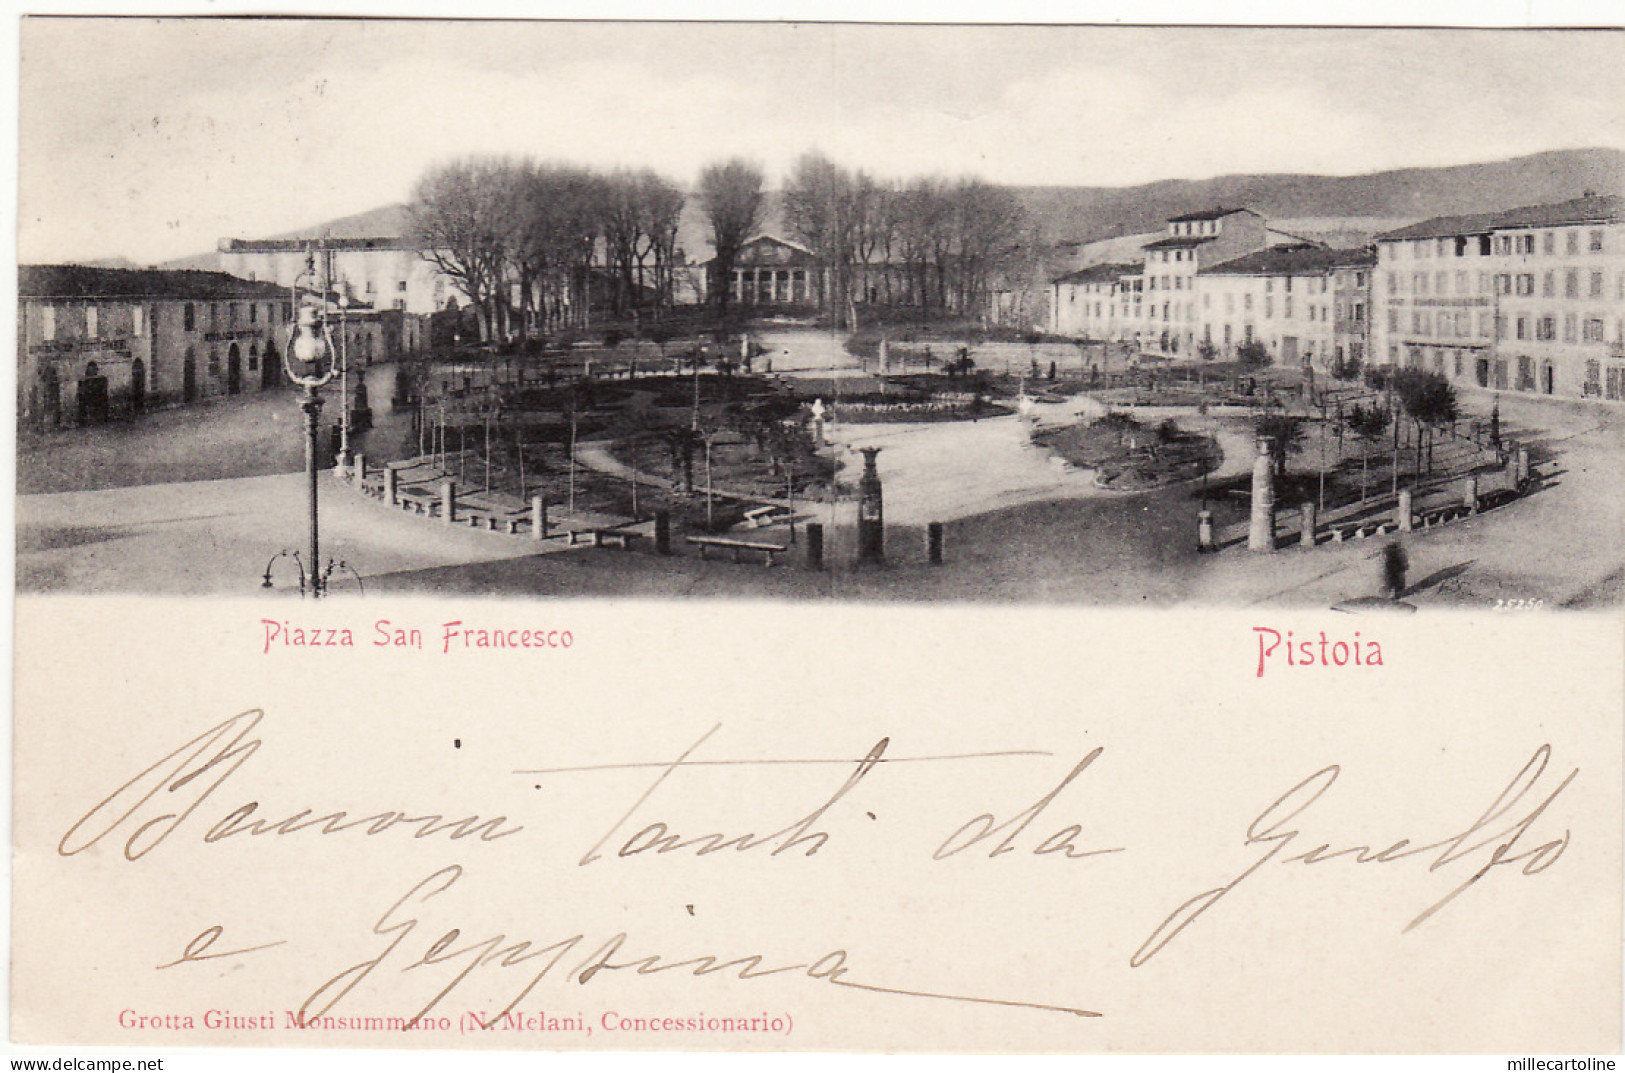 25250
Piazza San Francesco
Pistoia
Bacioni tanti da Guelfo
e Geppina
Grotta Giusti Monsummano (N. Melani, Concessionario)
delcampe.net
millecartoline